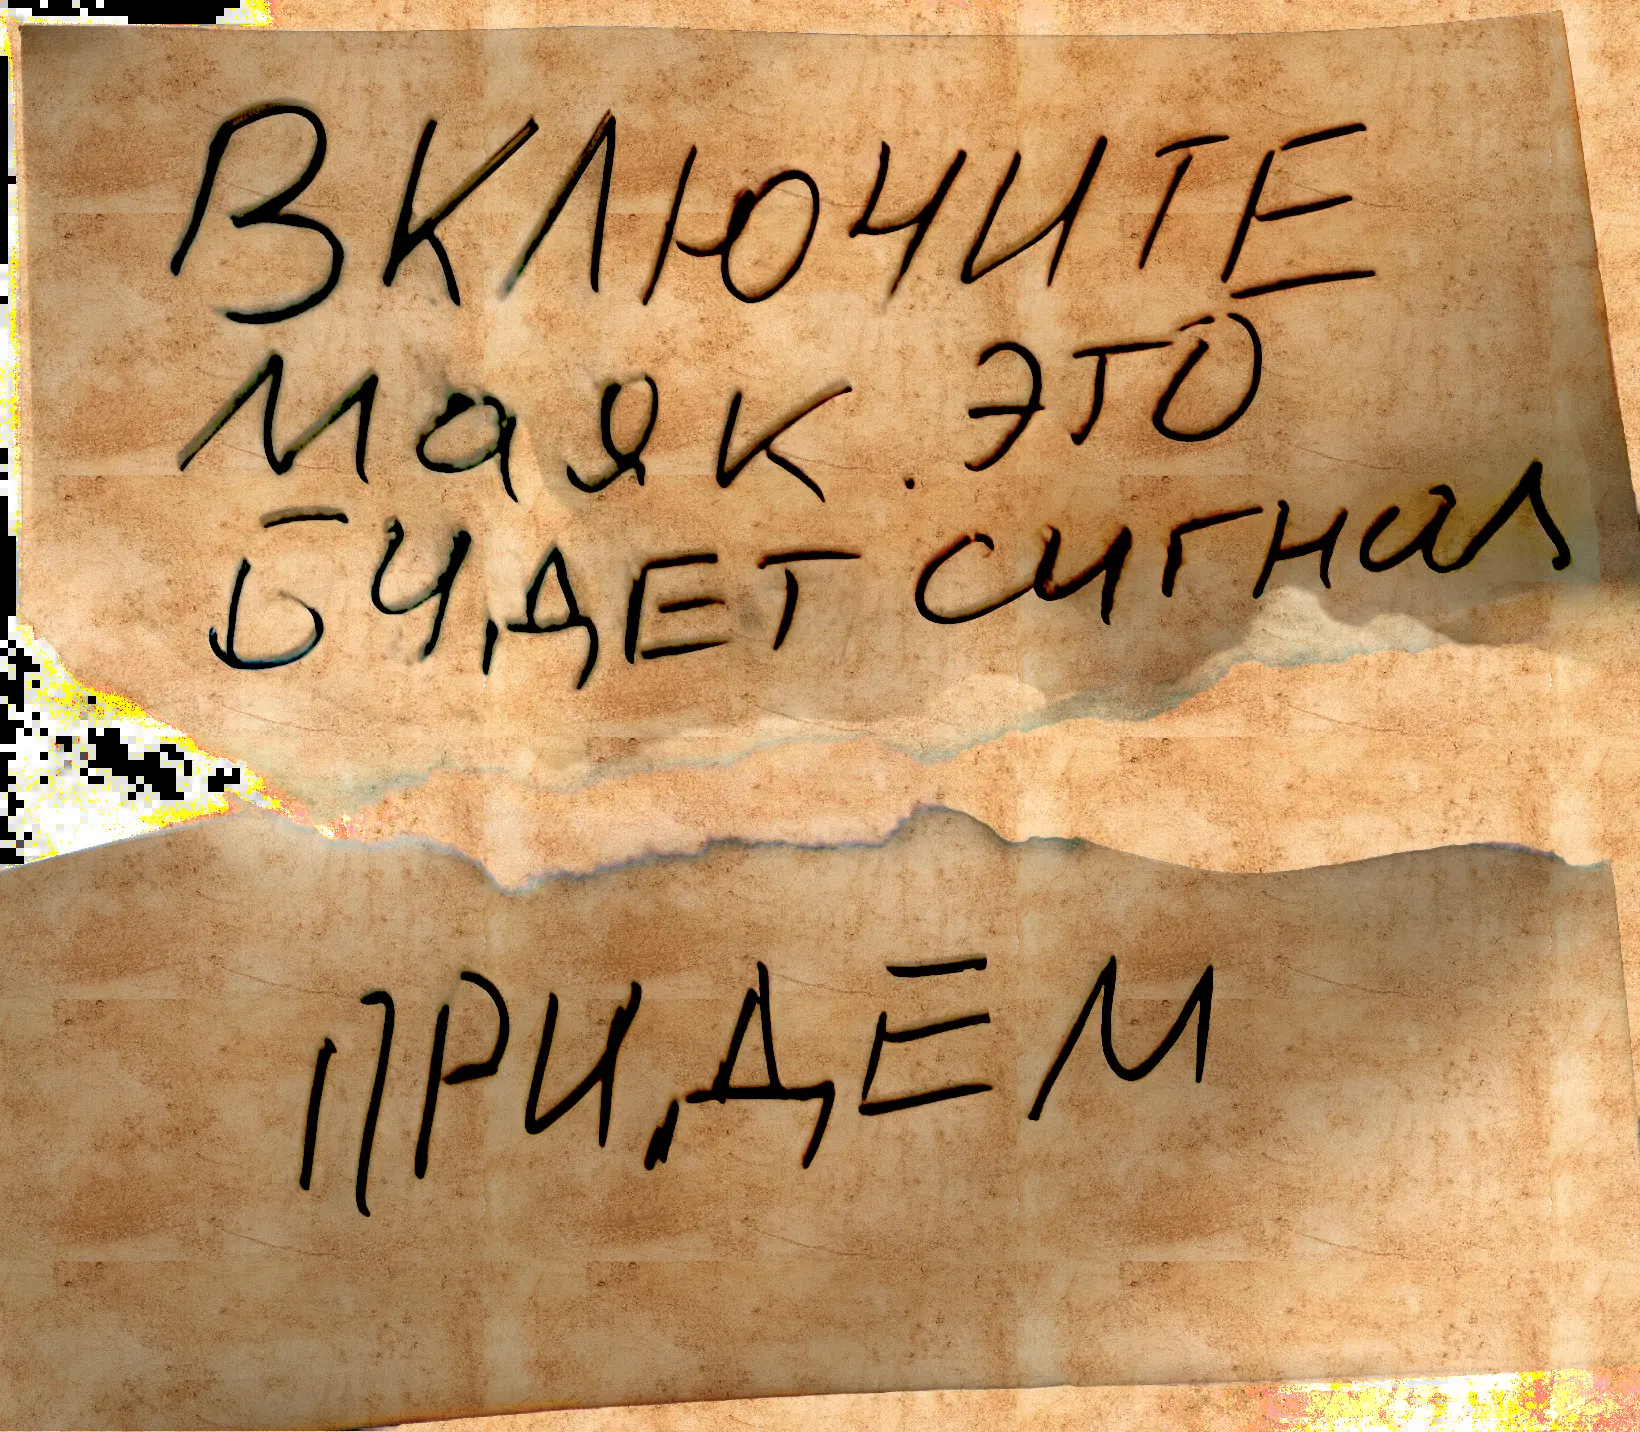 ВКЛЮЧИТЕ
маяк. ЭТО
БУДЕТ сигнал
ПРИДЕМ